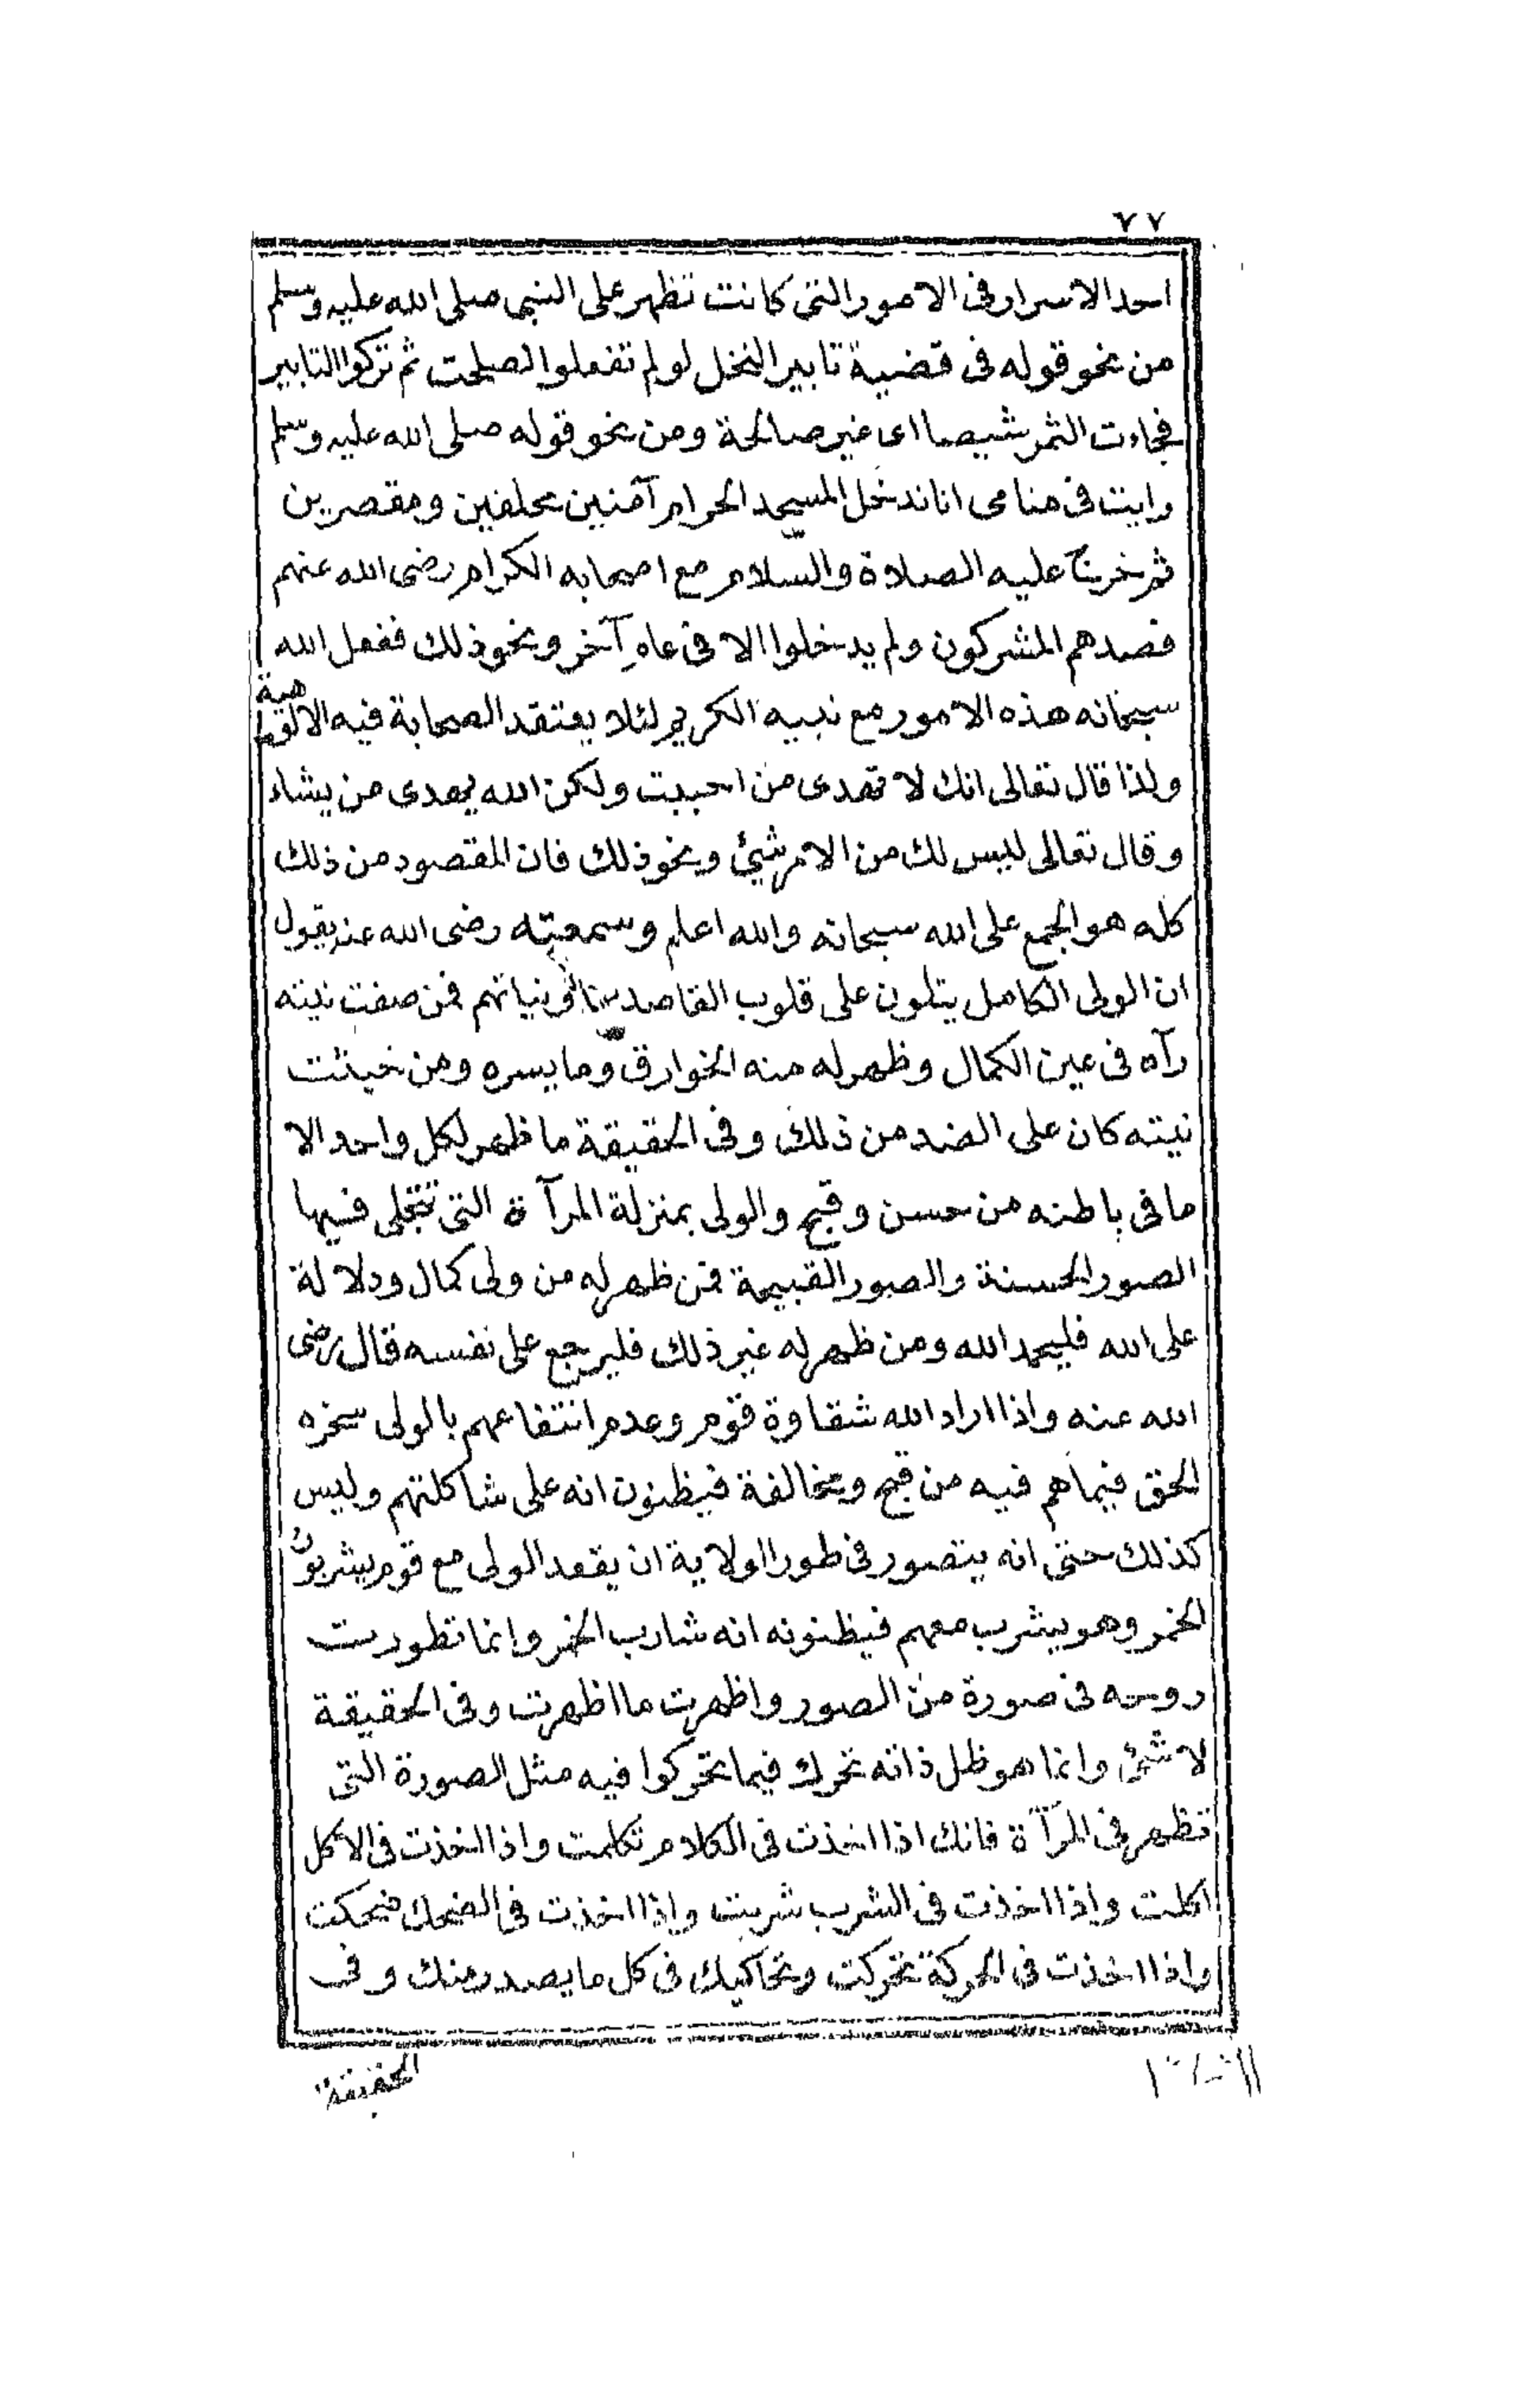 ٧٧
احد الاسرار فى الامور التى كانت تظهر على النبى صلى الله عليه وسلم
من نحو قوله فى قضية تابير النخل لو لم تفعلوا لصلحت ثم تركوا التابير
فجاءت الثمر شيصا اى غير صالحة ومن نحو قوله صلى الله عليه وسلم
رايت فى منامى اناندخل المسجد الحرام آمنين محلقين ومقصرين
ثم خرج عليه الصلاة والسلام مع اصحابه الكرام رضى الله عنهم
فصدهم المشركون ولم يدخلوا الا فى عام آخر ونحو ذلك ففعل الله
سبحانه هذه الامور مع نبيه الكريم لئلا يعتقد الصحابة فيه الالوهية
ولذا قال تعالى انك لا تهدى من احببت ولكن الله يهدى من يشاء
وقال تعالى ليس لك من الامر شيئ ونحو ذلك فان المقصود من ذلك
كله هو الجمع على الله سبحانه والله اعلم وسمعته رضى الله عنه يقول
ان الولى الكامل يتلون على قلوب القاصدين ونياتهم فمن صفت نيته
رآه فى عين الكمال وظهر له منه الخوارق وما يسره ومن خبثت
نيته كان على الضد من ذلك وفى الحقيقة ما ظهر لكل واحد الا
ما فى باطنه من حسن وقبح والولى بمنزلة المرآة التى تتجلى فيها
الصور الحسنة والصور القبيحة فمن ظهر له من ولى كمال ودلالة
على الله فليحمد الله ومن ظهر له غير ذلك فليرجع على نفسه قال رضى
الله عنه واذا اراد الله شقاوة قوم وعدم انتفاعهم بالولى سخره
الحق فيما هم فيه من قبح ومخالفة فيظنون انه على شاكلتهم وليس
كذلك حتى انه يتصور فى طور الولاية ان يقعد الولى مع قوم يشربون
الخمر وهو يشرب معهم فيظنونه انه شارب الخمر وانما تطورت
روحه فى صورة من الصور واظهرت ما اظهرت وفى الحقيقة
لا شئ وانما هو ظل ذاته تحرك فيما تحركوا فيه مثل الصورة التى
تظهر فى المرآة فانك اذا اخذت فى الكلام تكلمت واذا اخذت فى الاكل
اكلت واذا اخذت فى الشرب شربت واذا اخذت فى الضحك ضحكت
واذا اخذت فى الحركة تحركت وتحاكيك فى كل ما يصدر منك وفى
الحقيقة